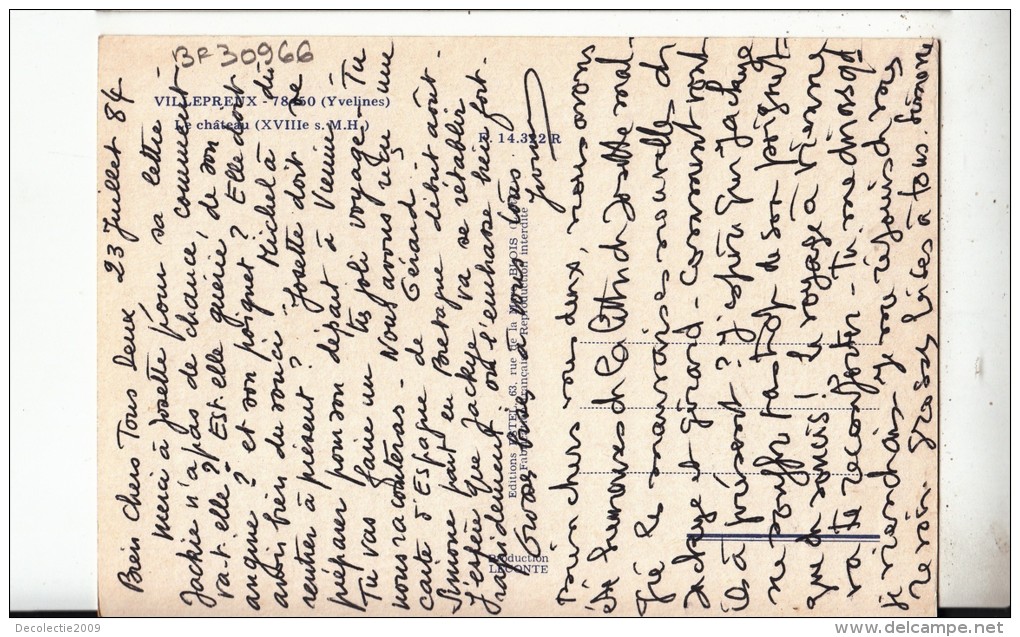 BF30966
VILLEPREUX - 78450 (Yvelines)
Le château (XVIIIe s. M.H.)
E. 14.322 R
Editions ESTEL, 63, rue de la Mare, BLOIS
Fabrication Française - Reproduction interdite
Production
LECONTE
23 Juillet 84
Biens Chers Tous Deux
merci à Josette pour sa lettre.
Jackie n'a pas de chance, comment
va-t-elle? Est-elle guérie, de son
angine? et son poignet? Elle doit
avoir bien du souci. Michel à dû
rentrer à présent? Josette doit se
préparer pour son départ à Vienne. Tu
Tu vas faire un très joli voyage. Tu
nous raconteras - Nous avons reçu une
carte d'Espagne de Gérard.
Simone part en Bretagne début août.
J'espère que Jackye va se rétablir
rapidement, on l'embrasse bien fort.
Grosses bises à vous tous
Yvonne
Bien chers vous deux, nous avons
été heureux de la lettre de Josette mal
gré les mauvaises nouvelles de
Jackye et Gérard - comment vont
ils à présent? j'espère que Jackye
ne souffre pas trop de son poignet
que de soucis! le voyage à Vienne
va te reconforter - tu me diras qd
je viendrais je me réjouis de vous
revoir. grosses bises à tous Simone
Decolectie2009
delcampe.net